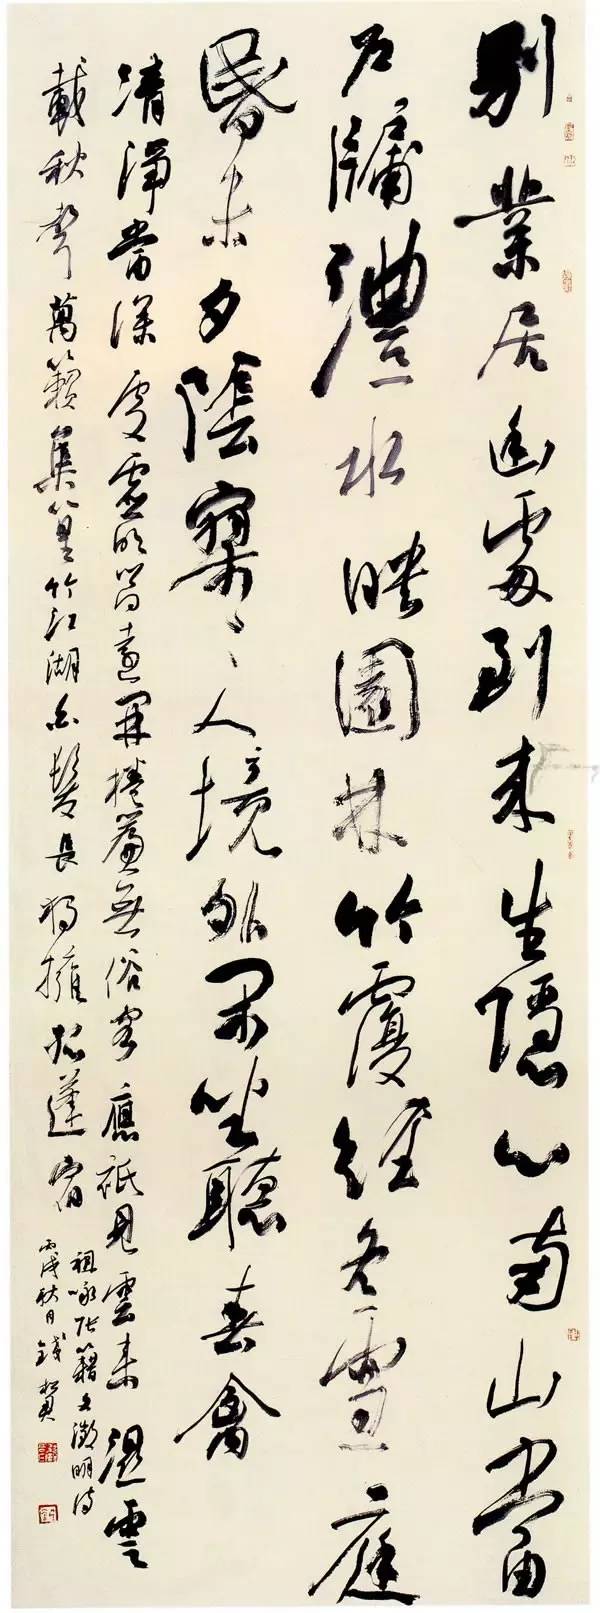 別業居幽處到來生隱心南山當
户牖灃水映園林竹覆經冬雪庭
昏未夕陰寥〻人境外閑坐聽春禽
清淨當深處虛明向遠開捲簾無俗客應祇見雲來濕雲
載秋聲萬籟集篁竹江湖白髮長獨擁孤蓬宿
祖咏張籍文徵明詩
丙戌秋月錢